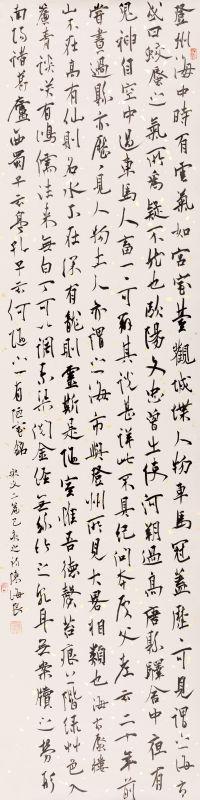 登州海中時有雲氣如宮室臺觀城堞人物車馬冠蓋歷歷可見謂之海市
或曰蛟蜃之氣所為疑不然也歐陽文忠曾出使河朔過高唐縣驛舍中夜有
鬼神自空中過車馬人畜一一可辨其說甚詳此不具紀問本處父老云二十年前
嘗晝過縣亦歷見人物土人亦謂之海市與登州所見大畧相類也 海市蜃樓
山不在高有仙則名水不在深有龍則靈斯是陋室惟吾德馨苔痕上階綠草色入
簾青談笑有鴻儒往來無白丁可以調素琴閱金經無絲竹之亂耳無案牘之勞形
南陽諸葛廬西蜀子雲亭孔子云何陋之有 陋室銘